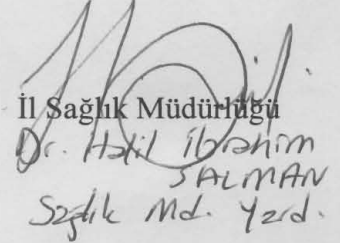 İl Sağlık Müdürlüğü
Dr. Halil İbrahim
SALMAN
Sağlık Md. Yard.